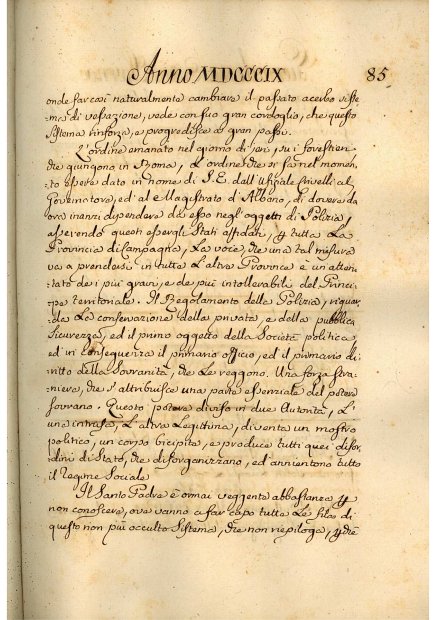 Anno MDCCCIX 85
onde far così naturalmente cambiare il passato acerbo siste-
ma di vesazione, vede con suo gran cordoglio, che questo
sistema rinforza, e progredisce a gran passi.
L'ordine emanato nel giorno di jeri, su i forestieri
che giungono in Roma, L'ordine che si fa nel momen-
to essere dato in nome di S.E. dall'Uffiziale Miollis al
Governatore, ed al Magistrato d'Albano, di dovere da
ora inanzi dipendere da esso negl'oggetti di Polizia,
asserendo questi essergli stati affidati, p tutta La
Provincia di Campagna, La voce, che una tal misura
va a prendersi in tutte L'altre Province è un atten-
tato de i più gravi, e de più intollerabili del Princi-
pe territoriale. Il Regolamento della Polizia, riguar-
da La conservazione della privata, e della pubblica
Sicurezza, ed il primo oggetto della Società politica,
ed in conseguenza il primario officio, ed il primario di-
ritto della Sovranità, che Le reggono. Una forza stra-
niera, che s'attribuisce una parte essenziale del potere
sovrano. Questo potere diviso in due Autorità, L'
una intrusa, L'altra Legittima, diventa un mostro
politico, un corpo bicipite, e produce tutti quei disor-
dini di Stato, che disorganizzano, ed annientono tutto
il Regime Sociale
Il Santo Padre è ormai veggente abbastanza p
non conoscere, ove vanno a far capo tutte Le fila di
questo non più occulto Sistema, che non riepiloga, p che